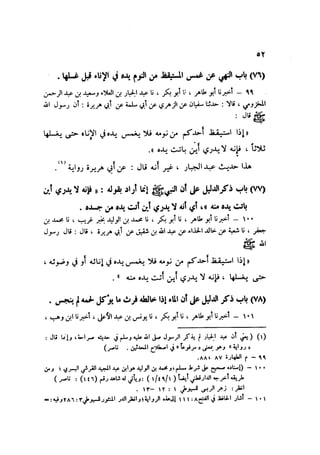 ٥٢
(٧٦) باب النهي عن غمس المستيقظ من النوم يده في الإناء قبل غسلها .
٩٩ – أخبرنا أبو طاهر ، نا أبو بكر ، نا عبد الجبار بن العلاء وسعيد بن عبد الرحمن
المخزومي ، قالا : حدثنا سفيان عن الزهري عن أبي سلمة عن أبي هريرة : أن رسول الله
ﷺ قال :
«إذا استيقظ أحدكم من نومه فلا يغمس يده في الإناء حتى يغسلها
ثلاثاً ، فإنه لا يدري أين باتت يده ».
هذا حديث عبد الجبار ، غير أنه قال : عن أبي هريرة رواية (١).
(٧٧) باب ذكر الدليل على أن النبي ﷺ إنما أراد بقوله : « فإنه لا يدري أين
باتت يده منه »، أي أنه لا يدري أين أتت يده من جسده .
١٠٠ – أخبرنا أبو طاهر ، نا أبو بكر ، نا محمد بن الوليد بخبر غريب ، نا محمد بن
جعفر ، نا شعبة عن خالد الحذاء عن عبد الله بن شقيق عن أبي هريرة ، قال : قال رسول
الله ﷺ
«إذا استيقظ أحدكم من نومه فلا يغمس يده في إنائه أو في وضوئه ،
حتى يغسلها ، فإنه لا يدري أين أتت يده منه » .
(٧٨) باب ذكر الدليل على أن الماء إذا خالطه فرث ما يؤكل لحمه لم ينجس .
١٠١ – أخبرنا أبو طاهر ، نا أبو بكر ، نا يونس بن عبد الأعلى ، أخبرنا ابن وهب ،
(١) (يعني أن عبد الجبار لم يذكر الرسول صلى الله عليه وسلم في حديثه صراحة، وإنما قال :
« رواية » وهو بمعنى « مرفوعاً » في اصطلاح المحدثين . ناصر)
٩٩ – م الطهارة ٨٧ ، ٨٨.
١٠٠ – (إسناده صحيح على شرط مسلم، ومحمد بن الوليد هو ابن عبد المجيد القرشي البسري ، ومن
طريقه أخرجه الدارقطني أيضاً (١/٤٩) ؛ ويأتي له شاهد رقم (١٤٦) : ناصر)
انظر : زهر الربى للسيوطي ١ : ١٢ – ١٣ .
١٠١ – أشار الحافظ في الفتح ٨: ١١١ إلى هذه الرواية؛ وانظر الدر المنثور للسيوطي ٣: ٢٨٦ وفيه: =